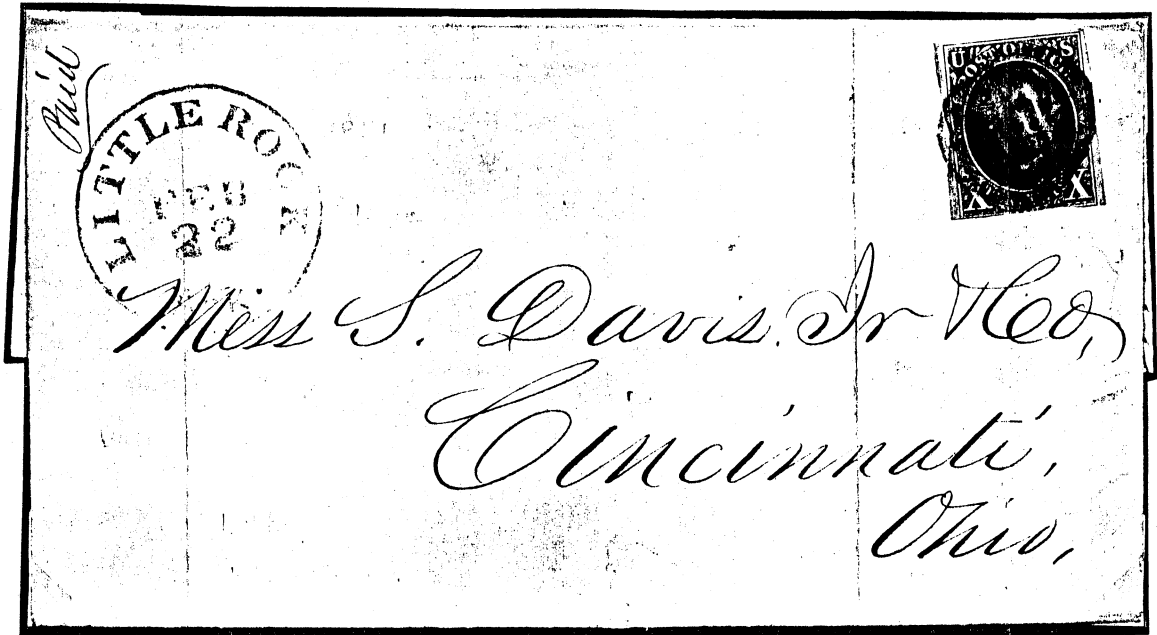 Paid
LITTLE ROCK
FEB
22
U S
POST OFFICE
X X
Mess S. Davis. Jr & Co,
Cincinnati,
Ohio,